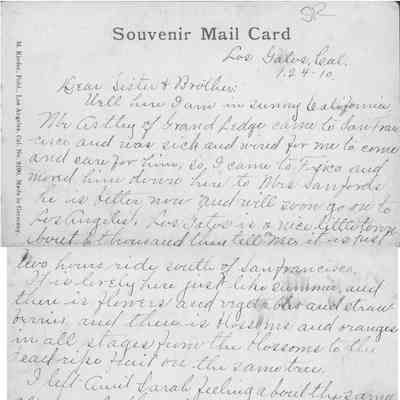 Souvenir Mail Card
M. Rieder, Publ., Los Angeles, Cal. No. Made in Germany.
Los Gatos, Cal.
1-24-10,
Dear Sister & Brother:
Well here I am in sunny California
Mr Astley of Grand Ledge came to San Fran
cisco and was sick and wired for me to come
and care for him, so, I came to Frisco and
moved him down here to Mrs Sanfords
he is better now and will soon go on to
Los Angeles. Los Gatos is a nice little town
about 6 thousand they tell me. it is just
two hours ride south of San Francisco.
It is lovely here just like summer, and
there is flowers and vegetables and straw
berries and there is blossoms and oranges
in all stages from the blossoms to the
dead ripe fruit on the same tree.
I left Aunt Sarah feeling about the same